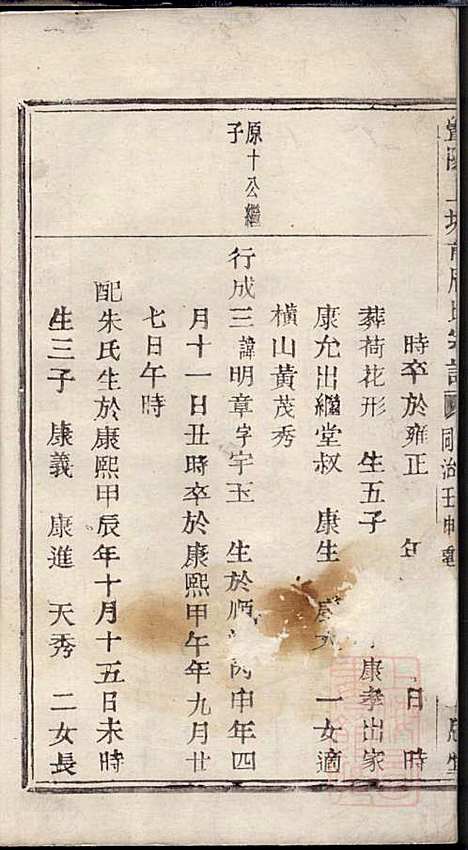 時卒於雍正 年 日時
葬荷花形 生五子 康孝出家
康允出繼堂叔 康生 一女適
橫山黃茂秀
原十公繼
子
行成三諱明章字宇玉 生於順 丙申年四
月十一日丑時卒於康熙甲午年九月廿
七日午時
配朱氏生於康熙甲辰年十月十五日未時
生三子 康義 康進 天秀 二女長